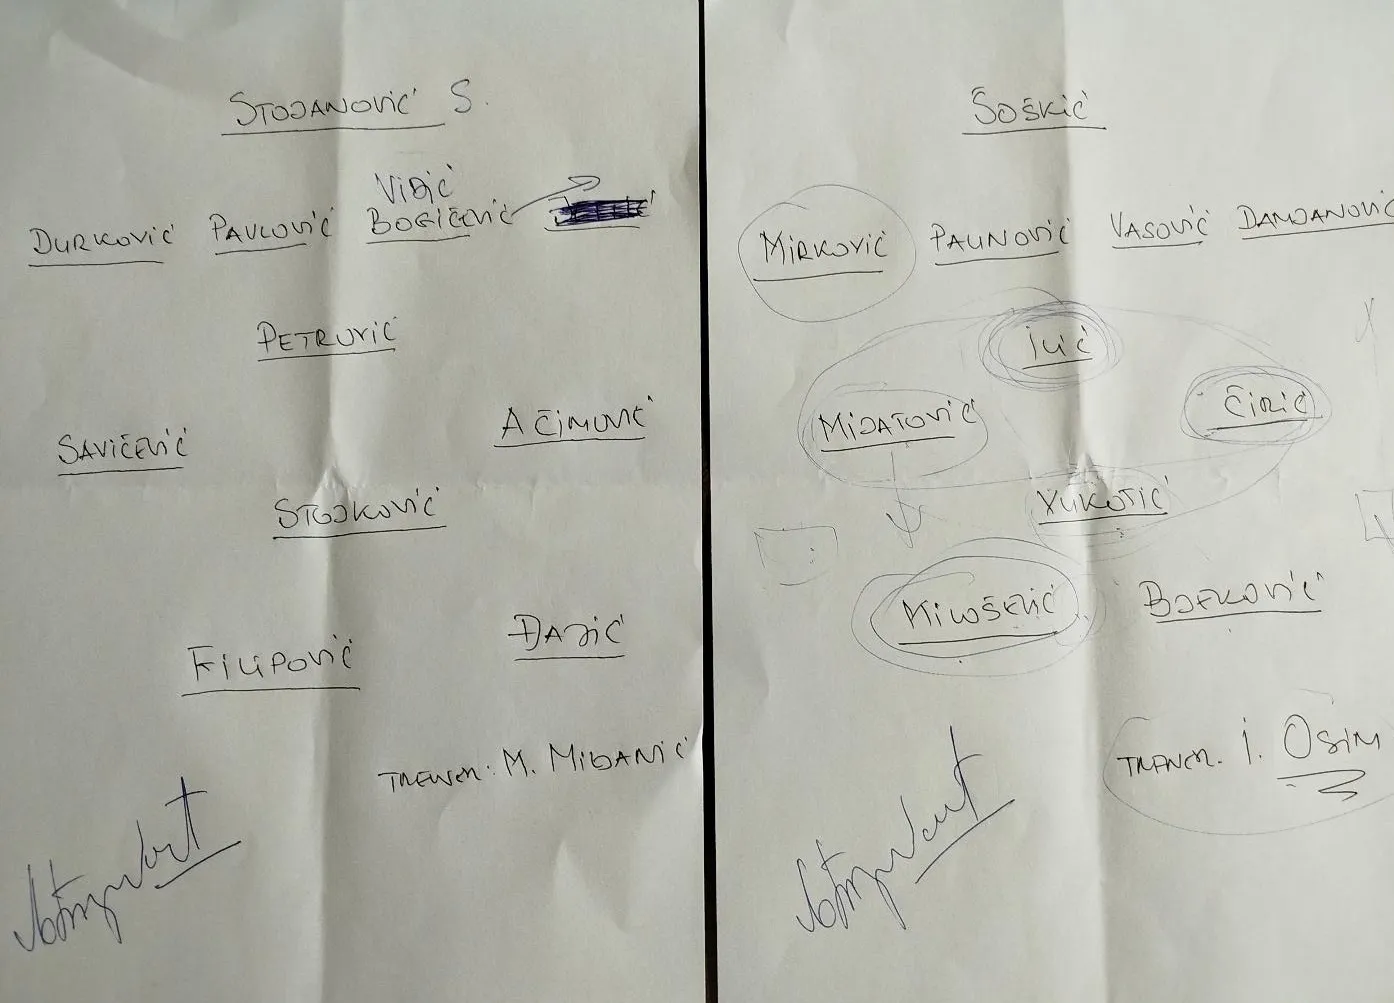 STOJANOVIĆ S.
VIDIĆ
ĐURKOVIĆ PAVLOVIĆ BOGIĆEVIĆ
PETROVIĆ
SAVIĆEVIĆ AĆIMOVIĆ
STOJKOVIĆ
FILIPOVIĆ DŽAJIĆ
TRENER: M. MILJANIĆ
ŠOŠKIĆ
MIRKOVIĆ PAUNOVIĆ VASOVIĆ DAMJANOVIĆ
ILIĆ
MIJATOVIĆ ĆIRIĆ
VUKOTIĆ
MILOŠEVIĆ BJEKOVIĆ
TRENER. I. OSIM